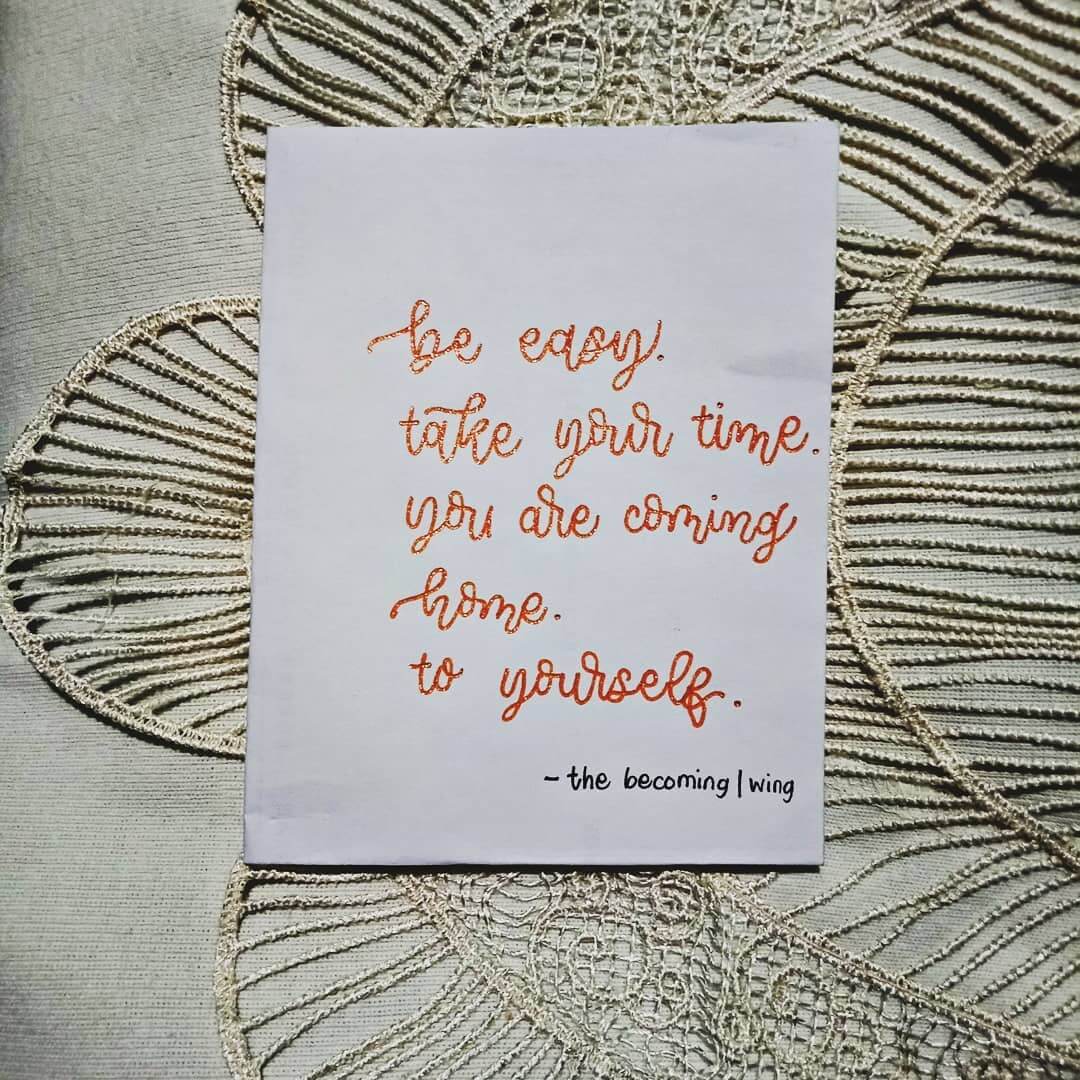 be easy.
take your time.
you are coming
home.
to yourself.
- the becoming | wing